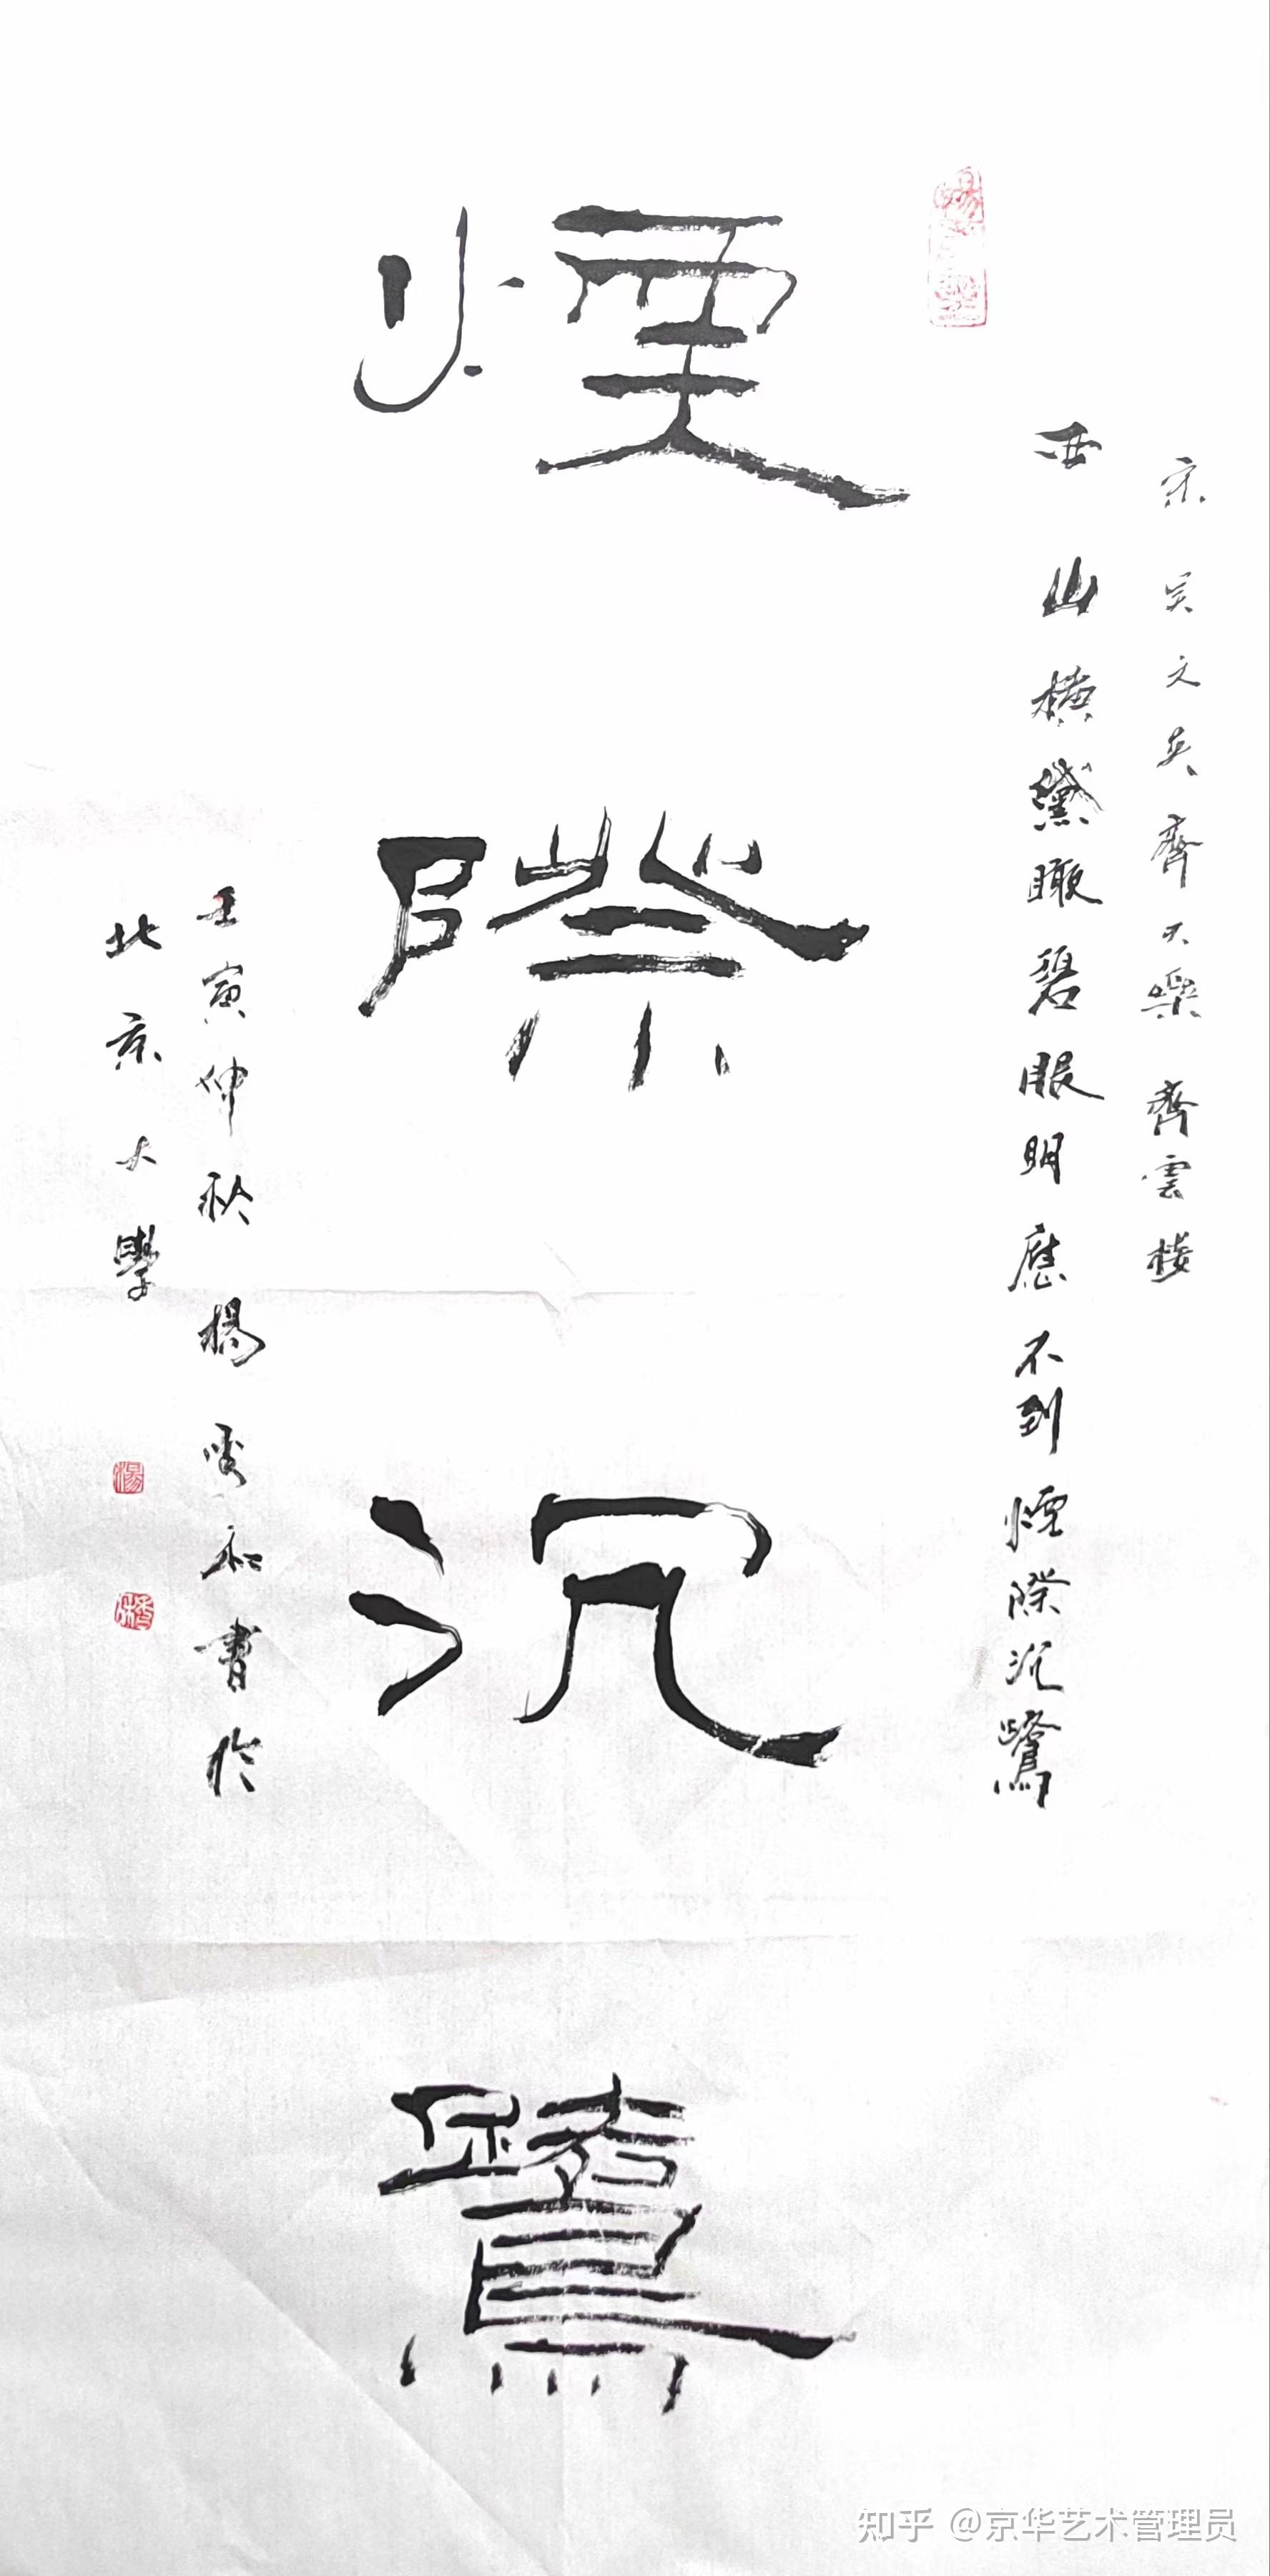 宋吴文英齊天樂 齊雲樓
西山橫黛瞰碧眼明應不到煙際沉鷺
煙際沉鷺
壬寅仲秋楊秀和書於
北京大學
知乎 @京华艺术管理员